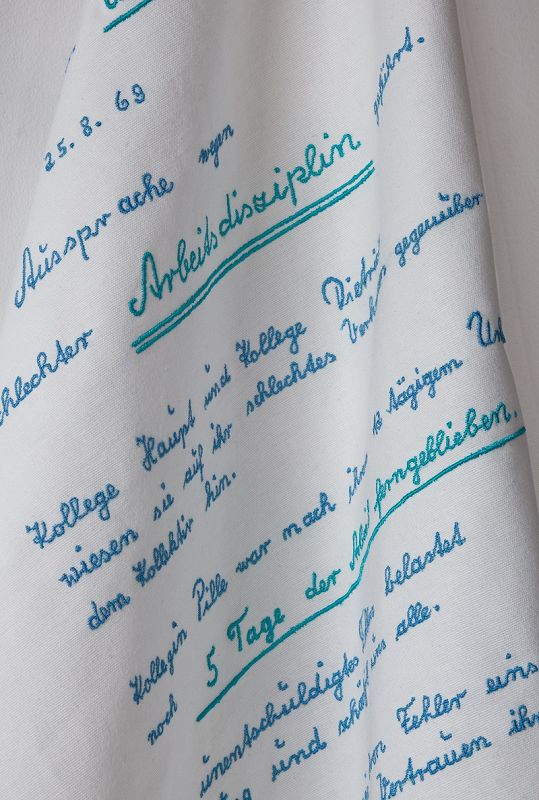 25. 8. 69
Aussprache wegen geführt.
schlechter Arbeitsdisziplin
Kollege Haupt und Kollege
wiesen sie auf ihr schlechtes gegenüber
dem Kollektiv hin.
Kollegin Pille war nach ihr 13 tägigem
noch 5 Tage der Arbeit ferngeblieben.
unentschuldigtes belastet
und uns alle.
Fehler eins
Vertrauen ihr